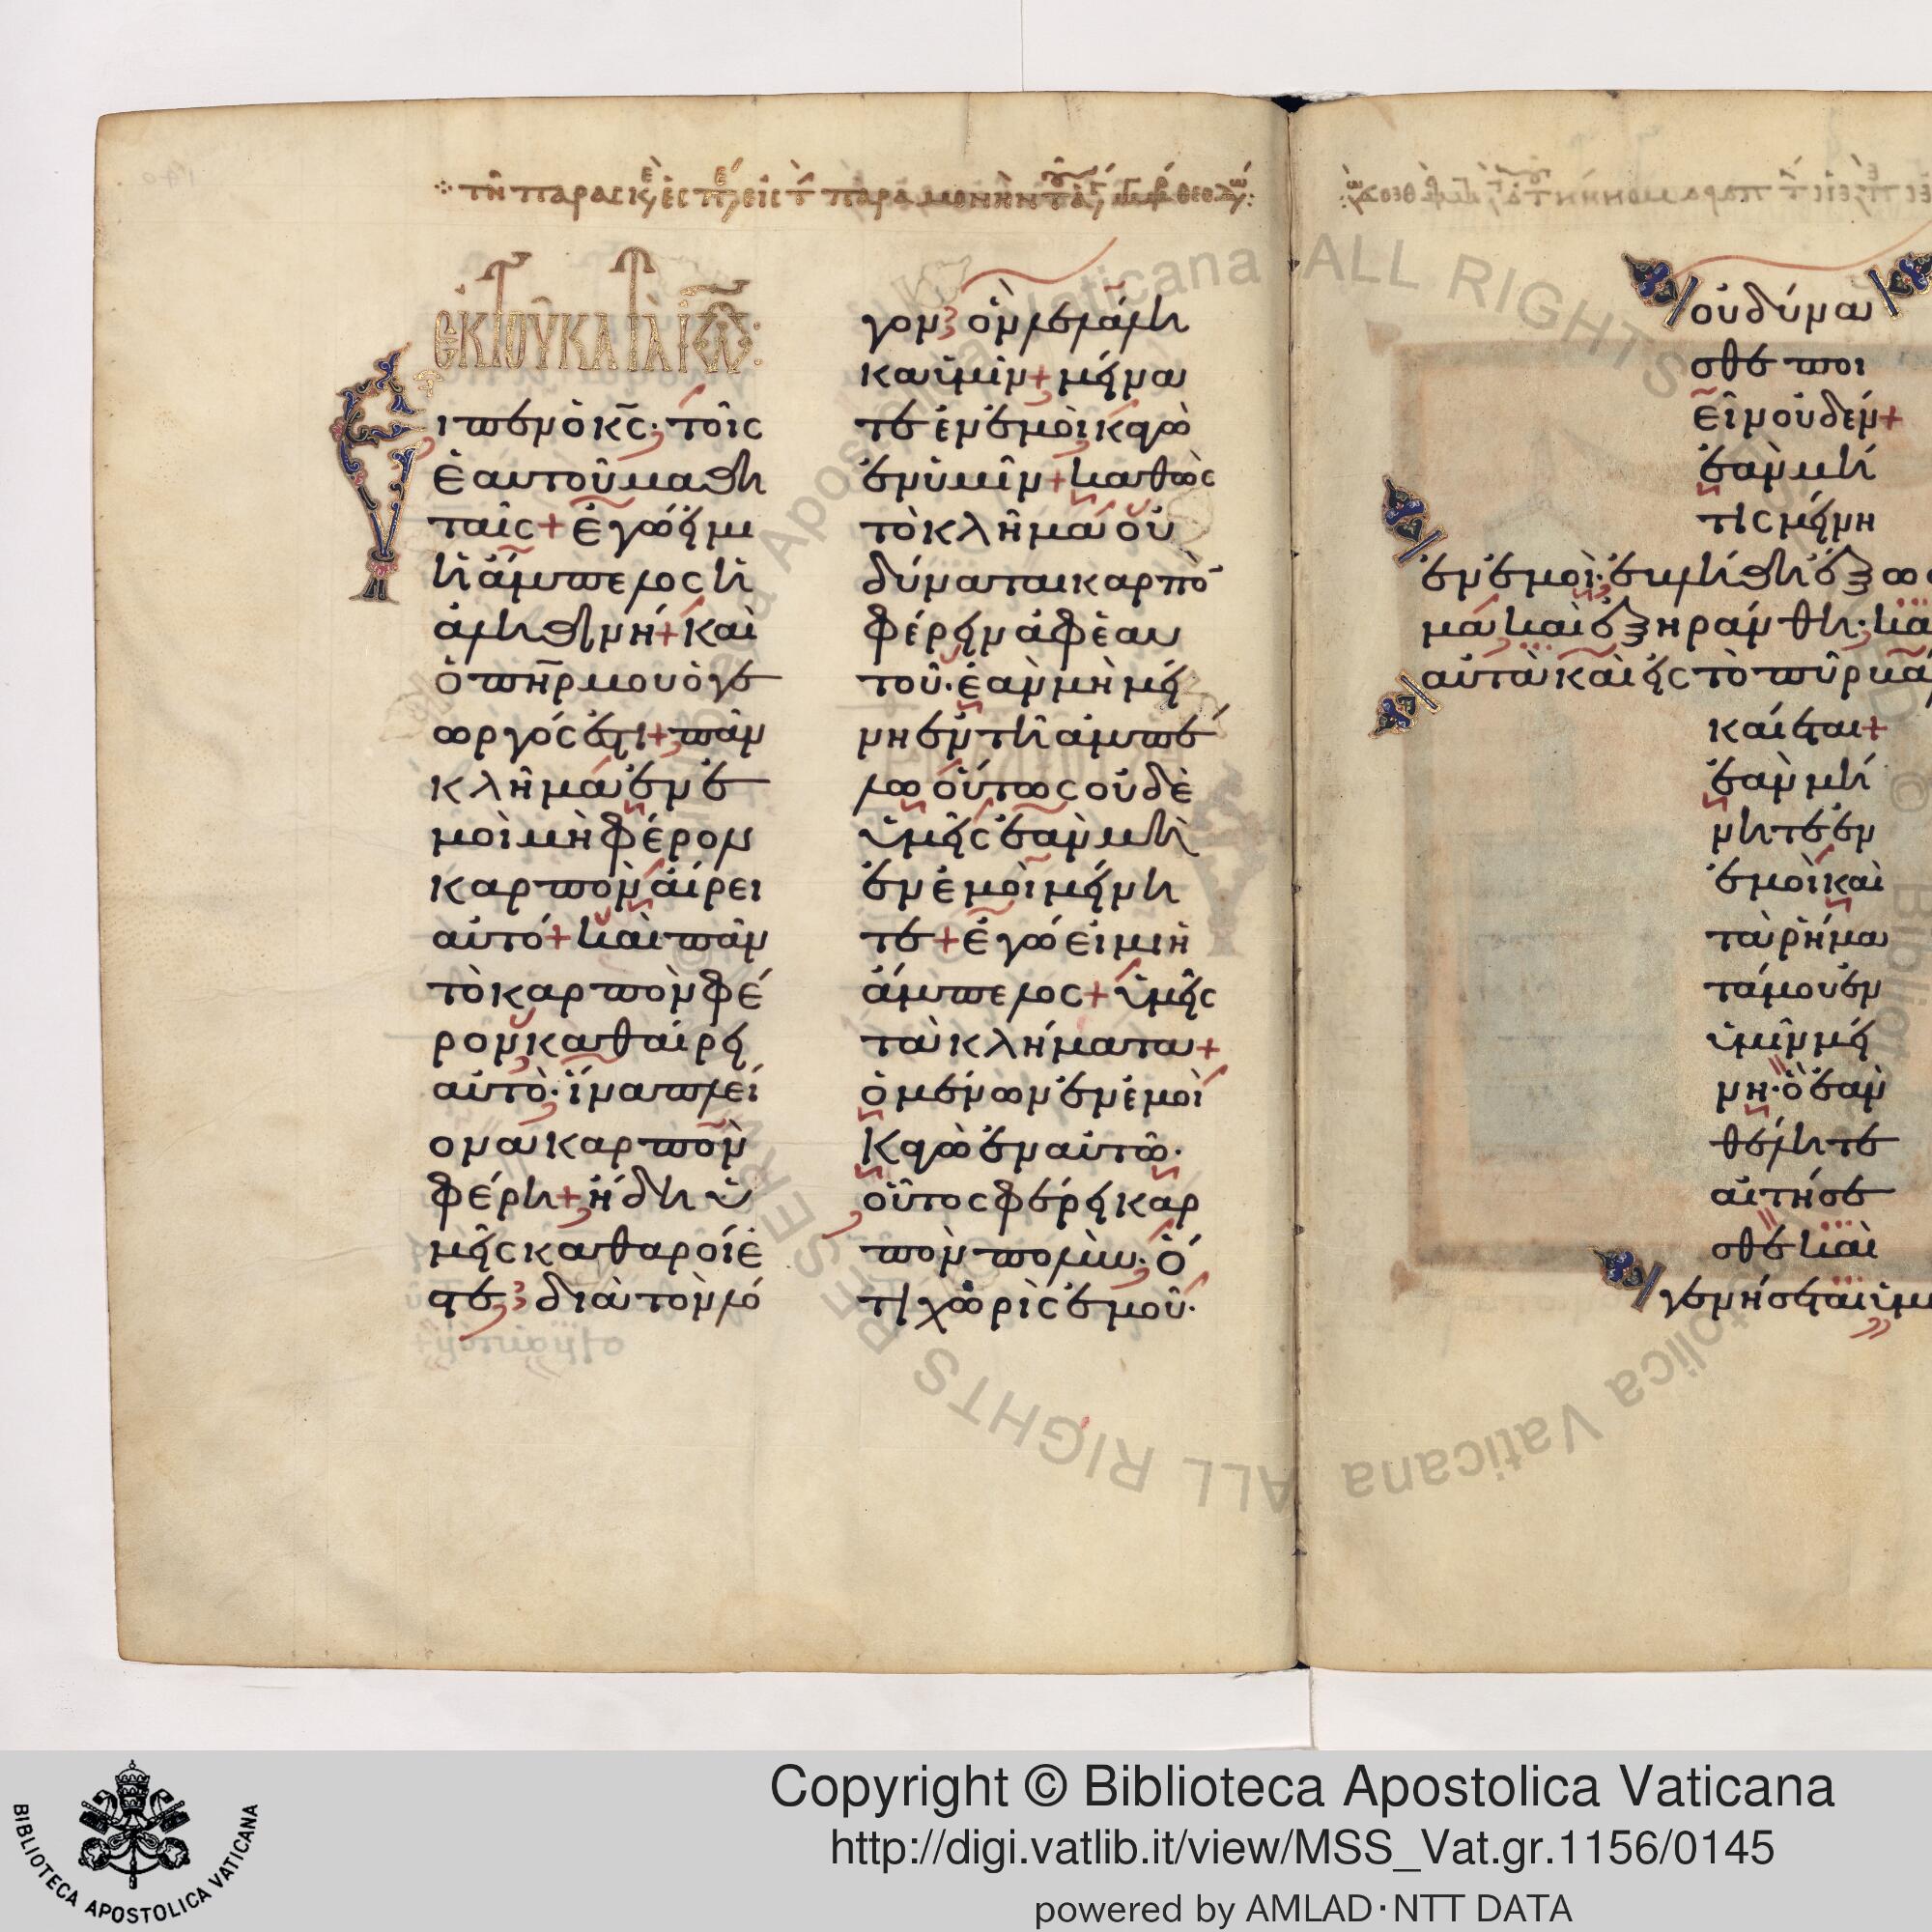 τῆ παρασκε ἐσπε εἰς τ παραμονὴν
ἐκ τοῦ κατὰ Ἰω:
Εἶπεν ὁ κς· τοῖς
ἑαυτοῦ μαθη
ταῖς+ ἐγώ εἰμι
ἡ ἄμπελος ἡ
ἀληθινή+ καὶ
ὁ πηρ μου ὁ γε
ωργός ἐστι+ πᾶν
κλῆμα ἐν ἐ
μοὶ μὴ φέρον
καρπὸν αἴρει
αὐτό+ καὶ πᾶν
τὸ καρπὸν φέ
ρον καθαίρει
αὐτὸ· ἵνα πλεί
ονα καρπὸν
φέρη+ ἤδη ὑ
μεῖς καθαροί ἐ
στε διὰ τὸν λό
γον ὃν λελάλη
κα ὑμῖν+ μείνα
τε ἐν ἐμοὶ κἀγὼ
ἐν ὑμῖν+ καθὼς
τὸ κλῆμα οὐ
δύναται καρπὸ
φέρειν ἀφ' ἑαυ
τοῦ· ἐὰν μὴ μεί
νη ἐν τῆ ἀμπέ
λω οὕτως οὐδὲ
ὑμεῖς ἐὰν μὴ
ἐν ἐμοὶ μείνη
τε+ ἐγώ εἰμι ἡ
ἄμπελος+ ὑμεῖς
τὰ κλήματα+
ὁ μένων ἐν ἐμοὶ
κἀγὼ ἐν αὐτῶ·
οὗτος φέρει καρ
πὸν πολὺν· ὅ
τι χωρὶς ἐμοῦ·
οὐ δύνα
σθε ποι
εῖν οὐδέν+
ἐὰν μή
τις μείνη
ἐν ἐμοὶ· ἐβλήθη ἔξω
μα καὶ ἐξηράνθη· κα
αὐτὰ καὶ εἰς τὸ πῦρ
καίεται+
ἐὰν μή
νητε ἐν
ἐμοὶ καὶ
τὰ ῥήμα
τά μου ἐν
ὑμῖν μεί
νη· ὃ ἐὰν
θέλητε
αἰτήσε
σθε καὶ
γενήσεται ὑμ
Copyright © Biblioteca Apostolica Vaticana
http://digi.vatlib.it/view/MSS_Vat.gr.1156/0145
powered by AMLAD·NTT DATA
BIBLIOTECA APOSTOLICA VATICANA